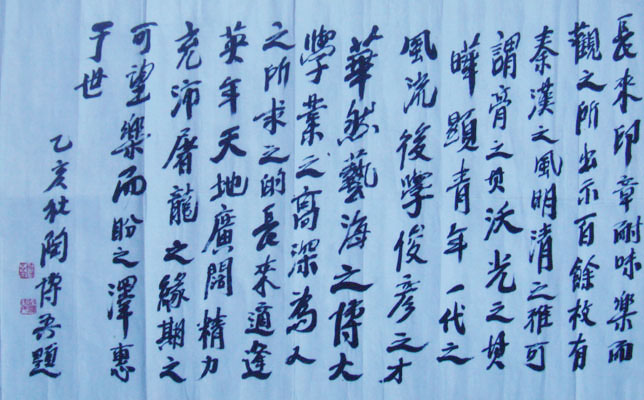 長來印章耐味樂而
觀之所出示百餘枚有
秦漢之風明清之雅可
謂膏之其沃光之其
曄顯青年一代之
風流後學俊彥之才
華然藝海之博大
學業之高深為人
之所求之的長來適逢
英年天地廣闊精力
充沛屠龍之緣期之
可望樂而盼之澤惠
于世
乙亥秋陶博吾題